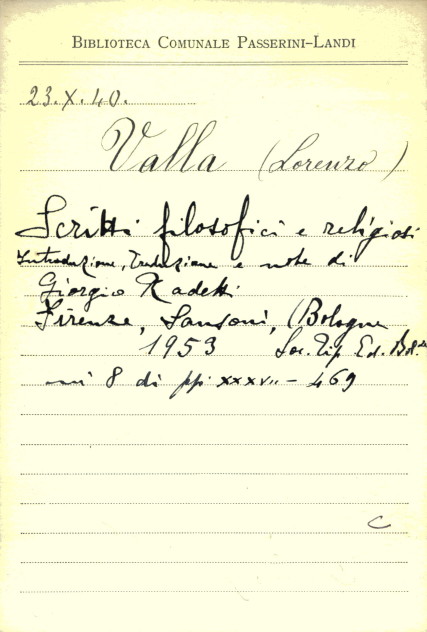 BIBLIOTECA COMUNALE PASSERINI-LANDI
23.X.40.
Valla (Lorenzo)
Scritti filosofici e religiosi
Introduzione, traduzione e note di
Giorgio Radetti
Firenze, Sansoni, (Bologna
1953 Soc. Tip. Ed. Bol.
in 8 di pp. XXXVII - 469
C